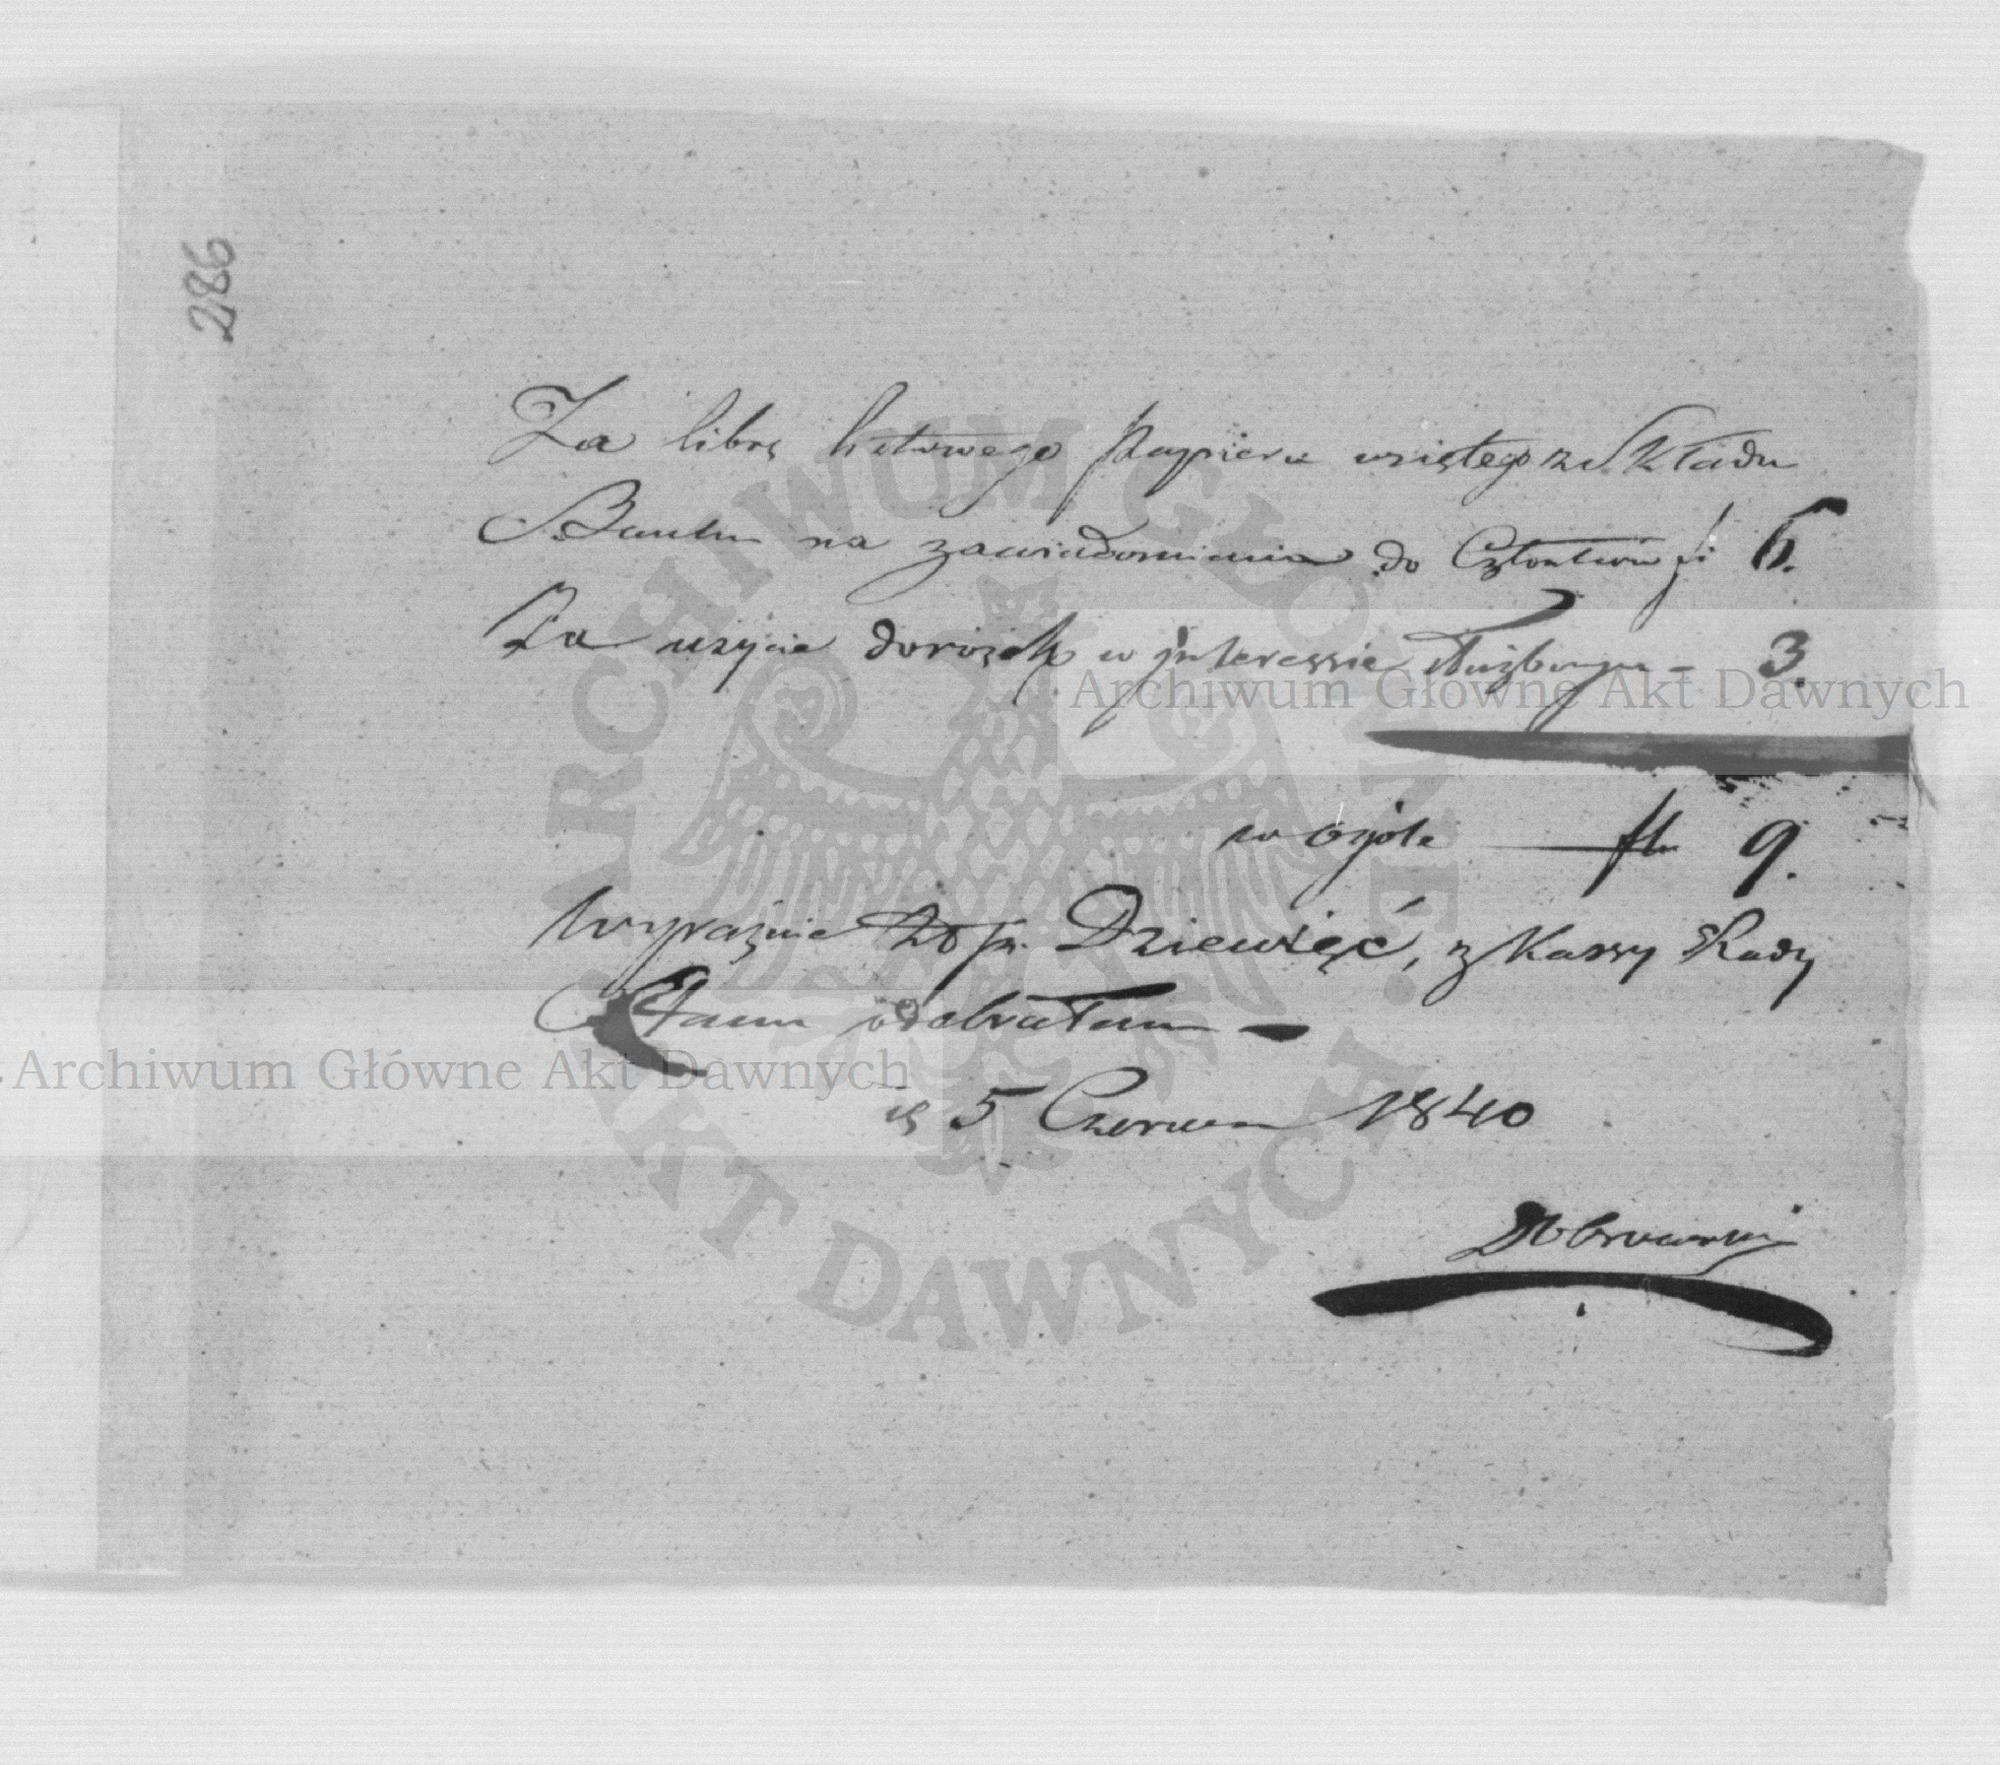 286
Za librę listowego papieru wziętego ze Składu
Banku na zawiadomienia do Członków fl 6.
Za użycie dorożek w interessie służbowym - 3.
w ogóle — fl 9.
Wyraźnie Zł p. Dziewięć, z Kassy Rady
Stanu odebrałem —
5 Czerwca 1840
Dobrowolski
Archiwum Główne Akt Dawnych
Archiwum Główne Akt Dawnych
ARCHIWUM GŁÓWNE AKT DAWNYCH